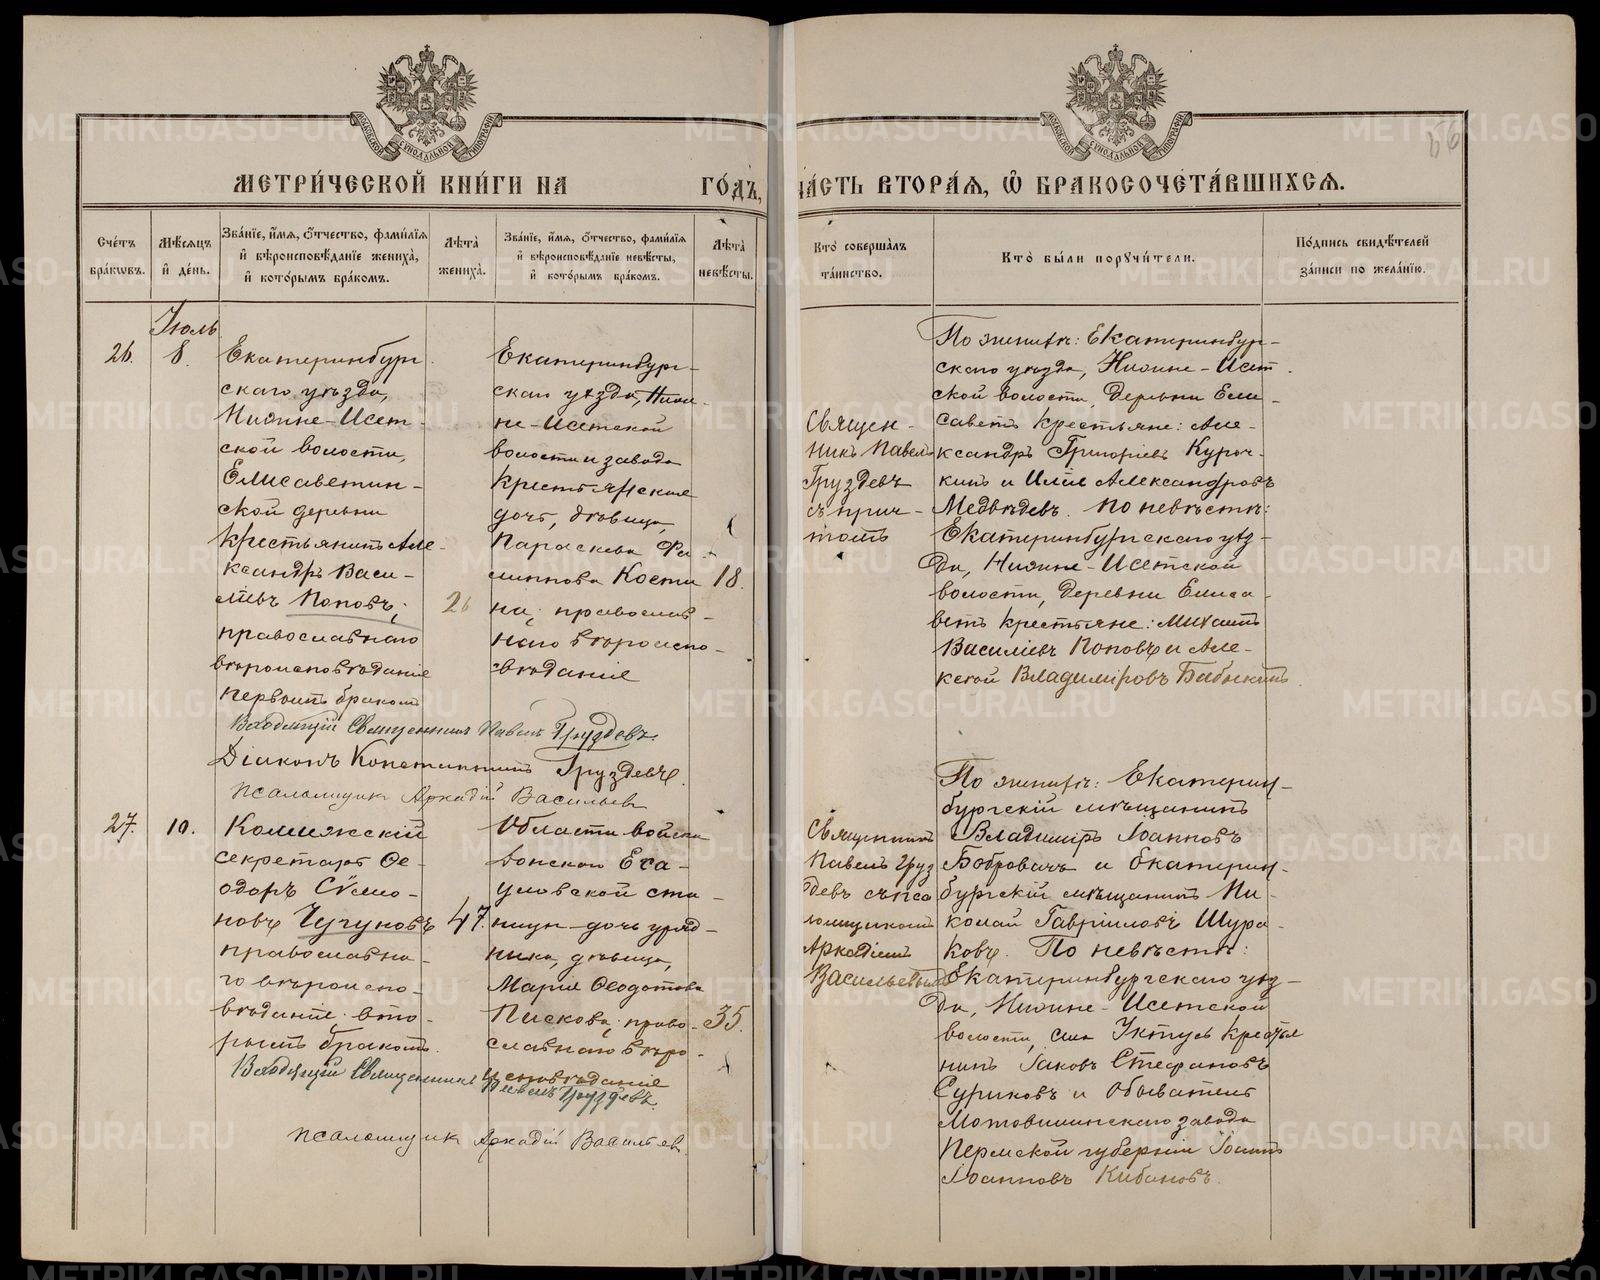 МЕТРИ́ЧЕСКОЙ КНИ́ГИ НА ГО́ДЪ,
ЧА́СТЬ ВТОРА́Я, Ѽ БРАКОСОЧЕТА́ВШИХСЯ.
Сче́тъ бра́кѡвъ.
Мѣ́сяцъ и҆ де́нь.
Зва́нїе, и҆́мя, ѻ҆́тчество, фами́лїя и҆ вѣроисповѣ́данїе жениха̀, и҆ кото́рымъ бра́комъ.
Лѣ́та жениха̀.
Зва́нїе, и҆́мя, ѻ҆́тчество, фами́лїя и҆ вѣроисповѣ́данїе невѣ́сты, и҆ кото́рымъ бра́комъ.
Лѣ́та невѣ́сты.
Кто̀ соверша́лъ та́инство.
Кто̀ бы́ли поручи́тели.
По́дпись свидѣ́телей за́писи по жела́нїю.
56
Іюль
26.
8.
Екатеринбург
скаго уѣзда,
Нижне-Исет-
ской волости,
Елисаветин-
ской деревни
крестьянинъ Але-
ксандръ Васи-
льевъ Поповъ;
православнаго
вѣроисповѣданія
первымъ бракомъ
26
Екатеринбург-
скаго уѣзда, Ниж-
не-Исетской
волости и завода
крестьянская
дочь, дѣвица,
Параскева Фи-
липпова Кости
на; православ-
наго вѣроиспо-
вѣданія
18.
Священ-
никъ Павелъ
Груздевъ
съ прич-
томъ
По женихѣ: Екатеринбур-
скаго уѣзда, Нижне-Исет
ской волости, деревни Ели-
саветъ крестьяне: Але-
ксандръ Григоріевъ Куроч-
кинъ и Илія Александровъ
Медвѣдевъ. По невѣстѣ:
Екатеринбургскаго уѣз-
да, Нижне-Исетской
волости, деревни Елиса-
ветъ крестьяне: Михаилъ
Василіевъ Поповъ и Але-
ксѣй Владиміровъ Бабыкинъ.
Священникъ Павелъ Груздевъ.
Діаконъ Константинъ Груздевъ.
Псаломщикъ Аркадій Васильевъ
27.
10.
Коллежскій
секретарь Ѳе-
одоръ Сѷмео-
новъ Чугуновъ
православна-
го вѣроиспо-
вѣданія вто-
рымъ бракомъ.
47.
Области войска
донскаго Еса-
уловской ста-
ницы дочь уряд-
ника, дѣвица,
Марія Ѳеодотова
Пискова; право-
славнаго вѣро-
исповѣданія
35.
Священникъ
Павелъ Груз
девъ съ пса
ломщикомъ
Аркадіемъ
Васильевымъ
По женихѣ: Екатерин-
бургскій мѣщанинъ
Владиміръ Іоанновъ
Бобровичъ и Екатерин-
бургскій мѣщанинъ Ни-
колай Гавріиловъ Шура-
ковъ. По невѣстѣ:
Екатеринбургскаго уѣз-
да, Нижне-Исетской
волости, села Уктусъ крестья
нинъ Іаковъ Стефановъ
Суриковъ и обыватель
Мотовилинскаго завода
Пермской губерніи Іоаннъ
Іоанновъ Кибановъ.
Священникъ
Павелъ Груздевъ.
Псаломщикъ Аркадій Васильевъ.
METRIKI.GASO-URAL.RU